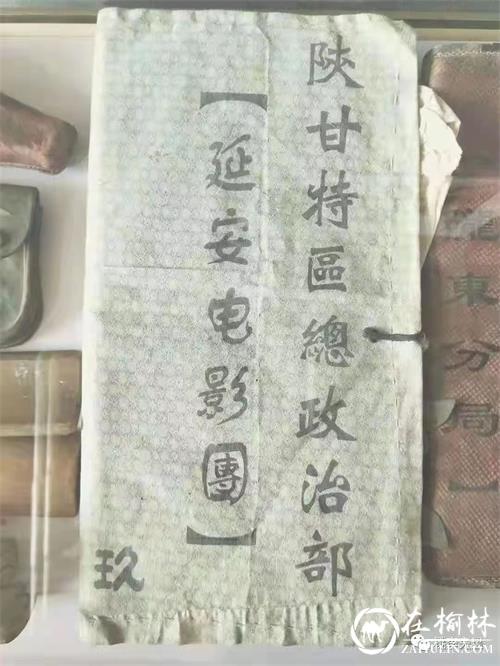 陝甘特區總政治部
【延安电影團】
玖
隴東分局】
在榆林
ZAIYULIN.COM